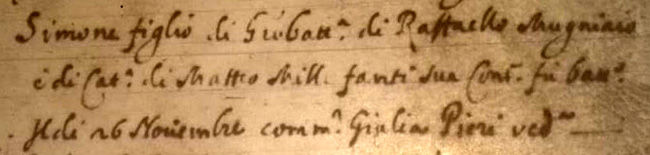 Simone figlio di Giobatt.ª di Raffaello Mugniaio
e di Cat.ª di Matteo Mill. fanti sua Cons. fu batt.º
Il di 26 Novembre comm.ª Giulia Pieri ved.ª